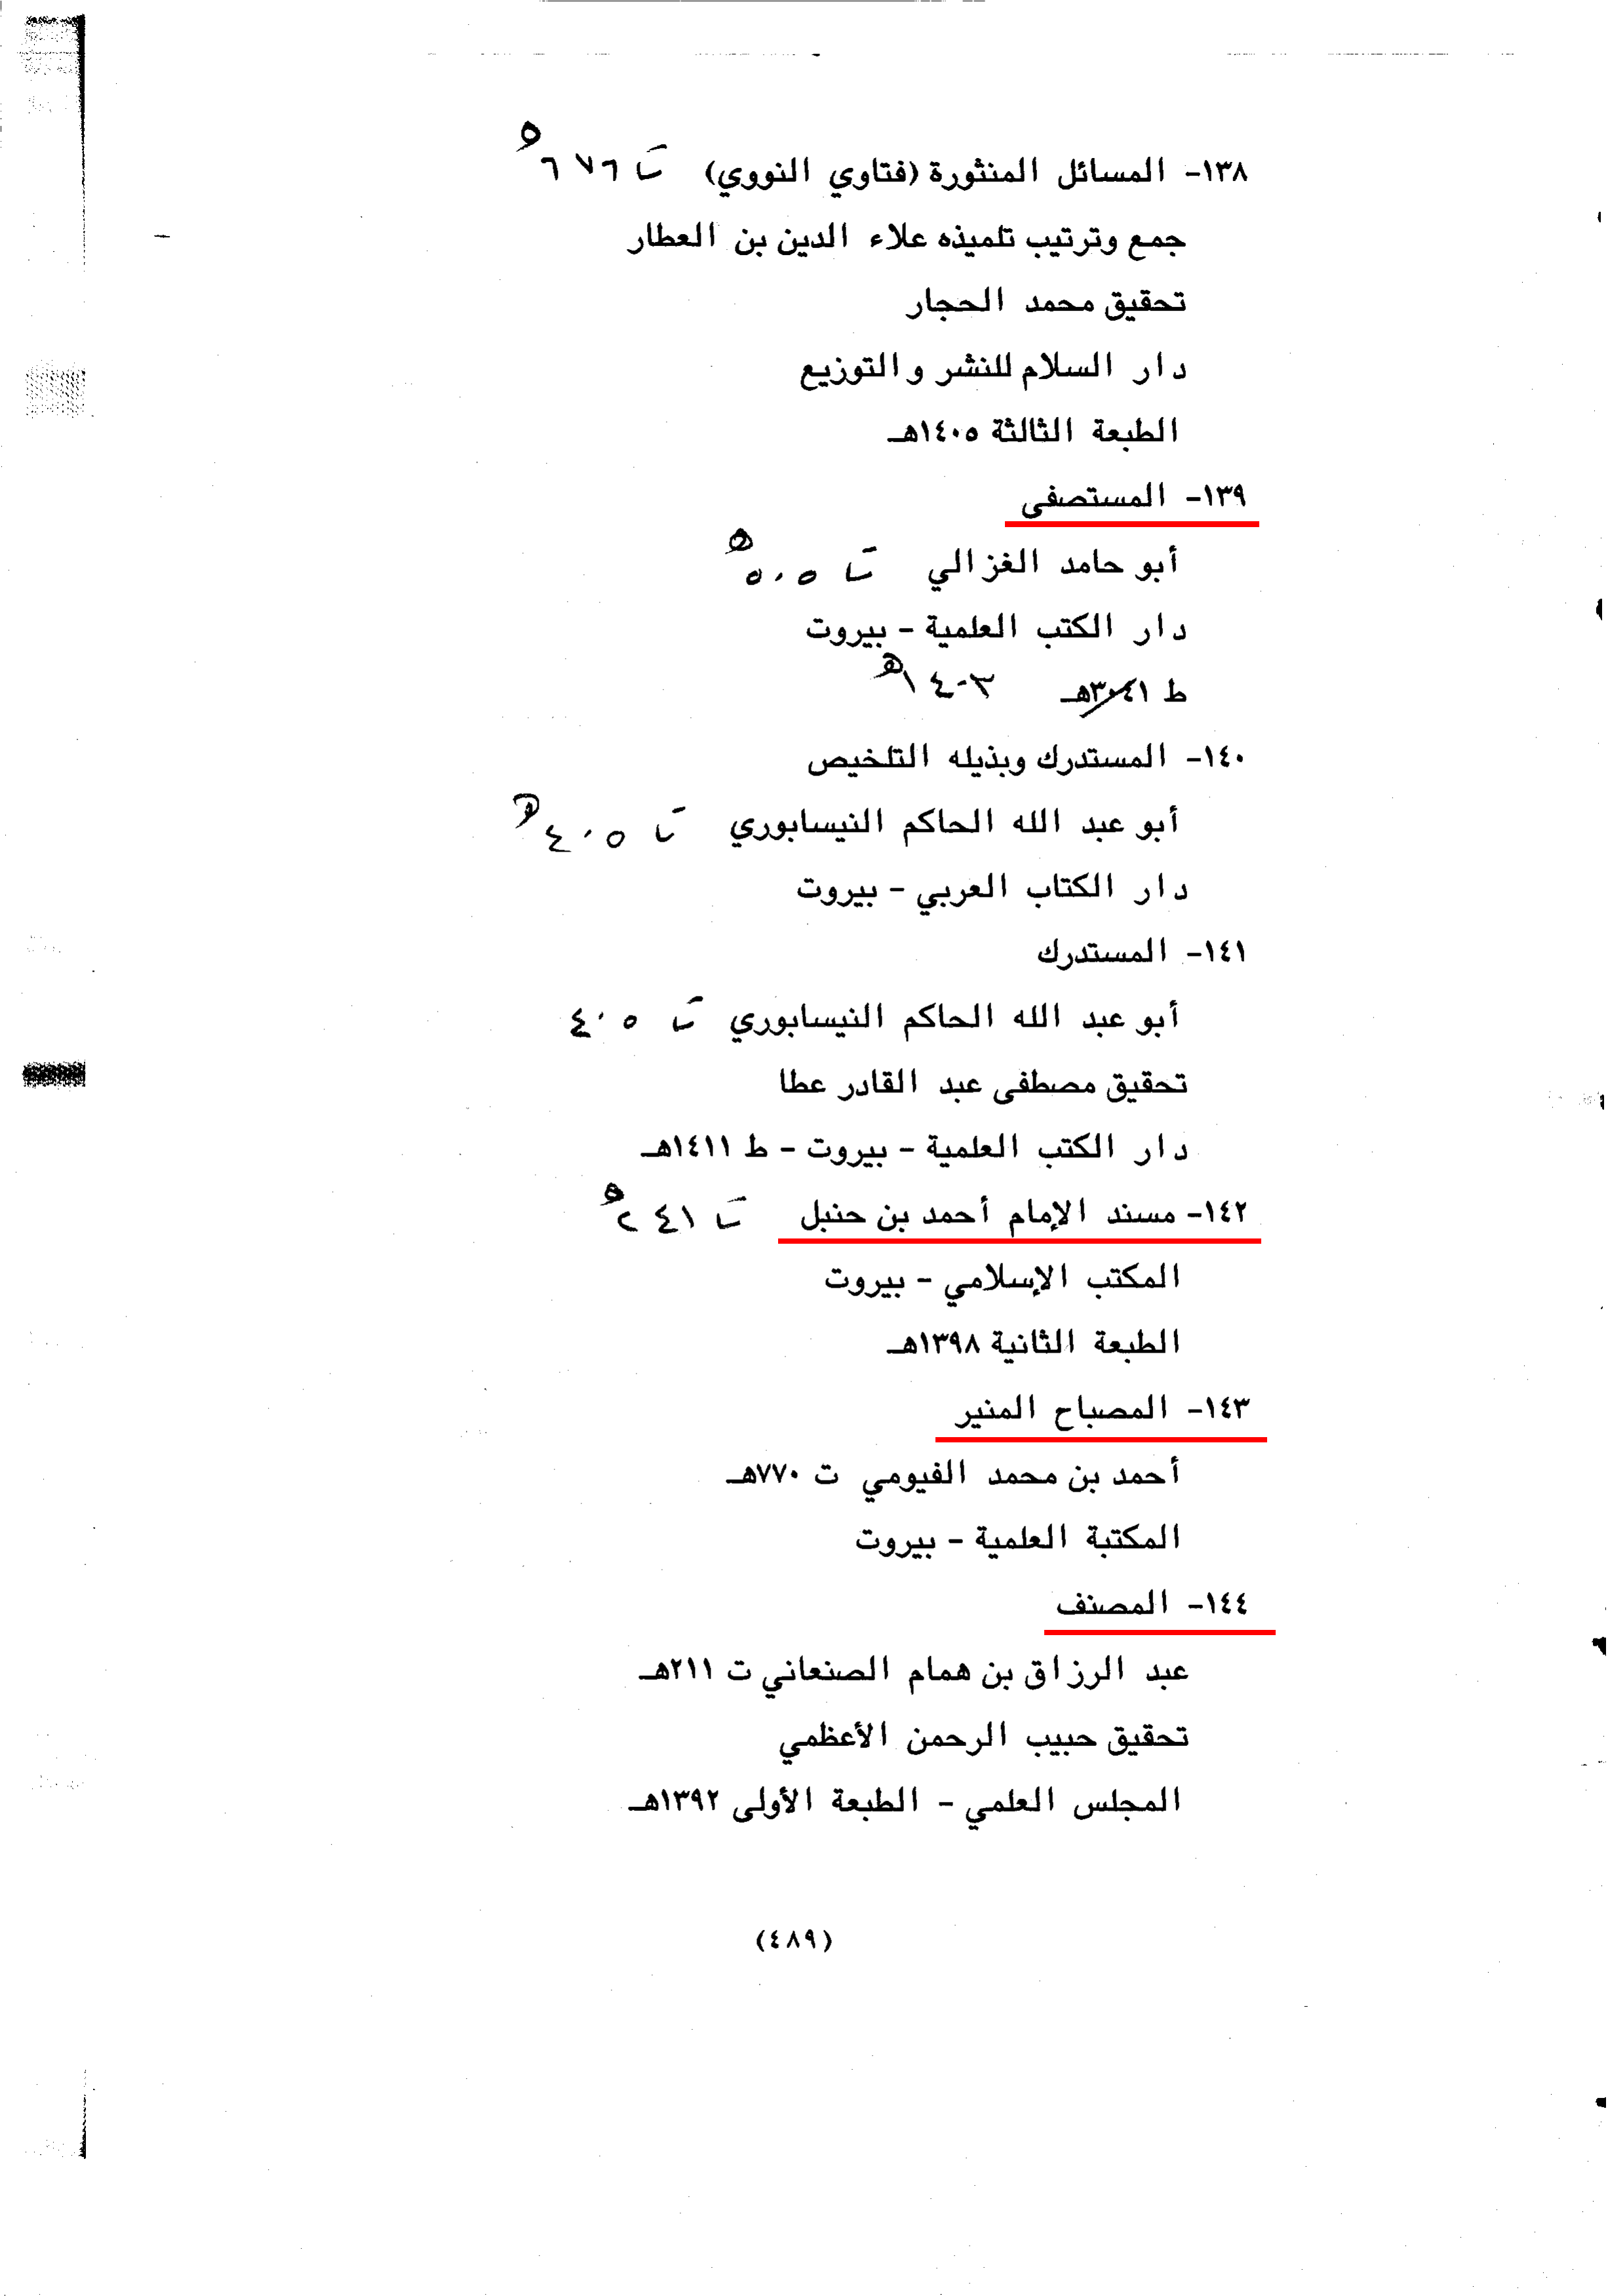 ١٣٨- المسائل المنثورة (فتاوي النووي) ت ٦٧٦ هـ
جمع وترتيب تلميذه علاء الدين بن العطار
تحقيق محمد الحجار
دار السلام للنشر والتوزيع
الطبعة الثالثة ١٤٠٥هـ
١٣٩- المستصفى
أبو حامد الغزالي ت ٥٠٥ هـ
دار الكتب العلمية - بيروت
ط ٣٠٤١هـ ١٤٠٣ هـ
١٤٠- المستدرك وبذيله التلخيص
أبو عبد الله الحاكم النيسابوري ت ٤٠٥ هـ
دار الكتاب العربي - بيروت
١٤١- المستدرك
أبو عبد الله الحاكم النيسابوري ت ٤٠٥
تحقيق مصطفى عبد القادر عطا
دار الكتب العلمية - بيروت - ط ١٤١١هـ
١٤٢- مسند الإمام أحمد بن حنبل ت ٢٤١ هـ
المكتب الإسلامي - بيروت
الطبعة الثانية ١٣٩٨هـ
١٤٣- المصباح المنير
أحمد بن محمد الفيومي ت ٧٧٠هـ
المكتبة العلمية - بيروت
١٤٤- المصنف
عبد الرزاق بن همام الصنعاني ت ٢١١هـ
تحقيق حبيب الرحمن الأعظمي
المجلس العلمي - الطبعة الأولى ١٣٩٢هـ
(٤٨٩)